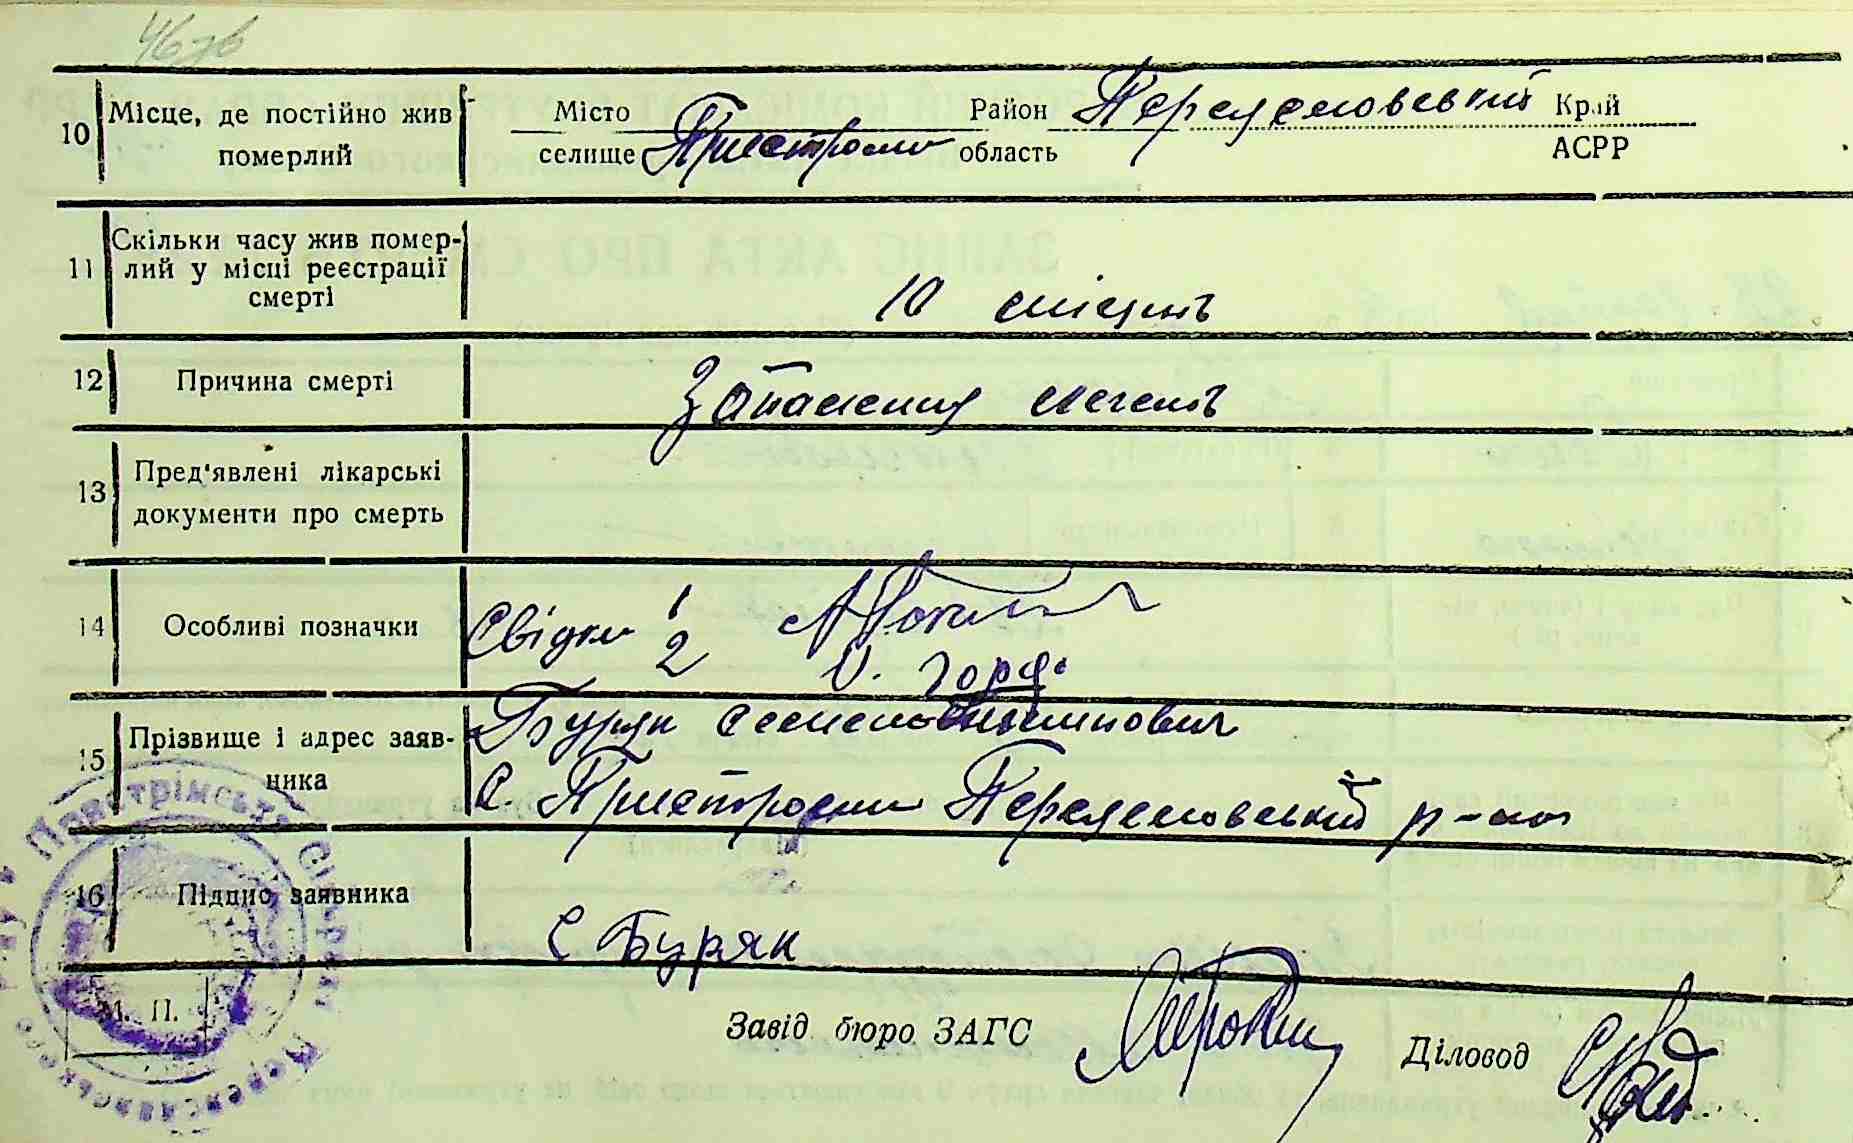 46зв
10 Місце, де постійно жив померлий
Місто селище Пристроми Район область Переяславський Край АСРР
11 Скільки часу жив помер-
лий у місці реєстрації
смерті
10 місяців
12 Причина смерті Запалення легенів
13 Пред'явлені лікарські
документи про смерть
14 Особливі позначки Свідки 1
2 О. Горд.
15 Прізвище і адрес заяв-
ника
Буряк Семен
с. Пристроми Переяславський р-на
16 Підпис заявника
С Буряк
М. П.
Завід. бюро ЗАГС Діловод